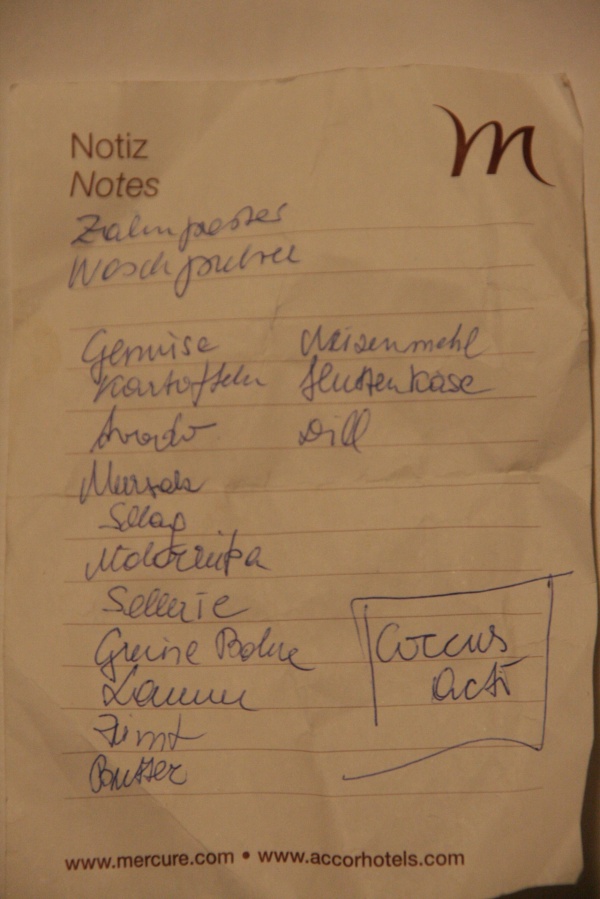 Notiz
Notes
m
Zahnpaster
Waschpulver
Gemüse
Kartoffeln
Avodo
Sellerie
Grüne Bohne
Zimt
Butter
Meizenmehl
Huttenkäse
Dill
Coccus
acti
www.mercure.com • www.accorhotels.com